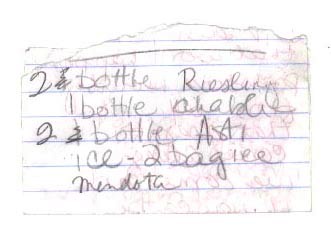 2 bottle Riesling
1 bottle chablis
2 bottle Asti
ice - 2 bag ice
mendota